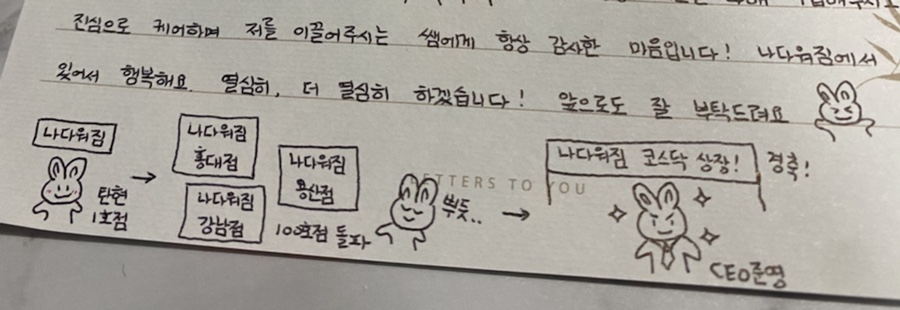 진심으로 케어하며 저를 이끌어주시는 쌤에게 항상 감사한 마음입니다! 나다워짐에서
있어서 행복해요. 열심히, 더 열심히 하겠습니다! 앞으로도 잘 부탁드려요
나다워짐
탄현
1호점
나다워짐
홍대점
나다워짐
강남점
나다워짐
용산점
100호점 돌파
LETTERS TO YOU
뿌듯..
나다워짐 코스닥 상장!
경축!
CEO준영